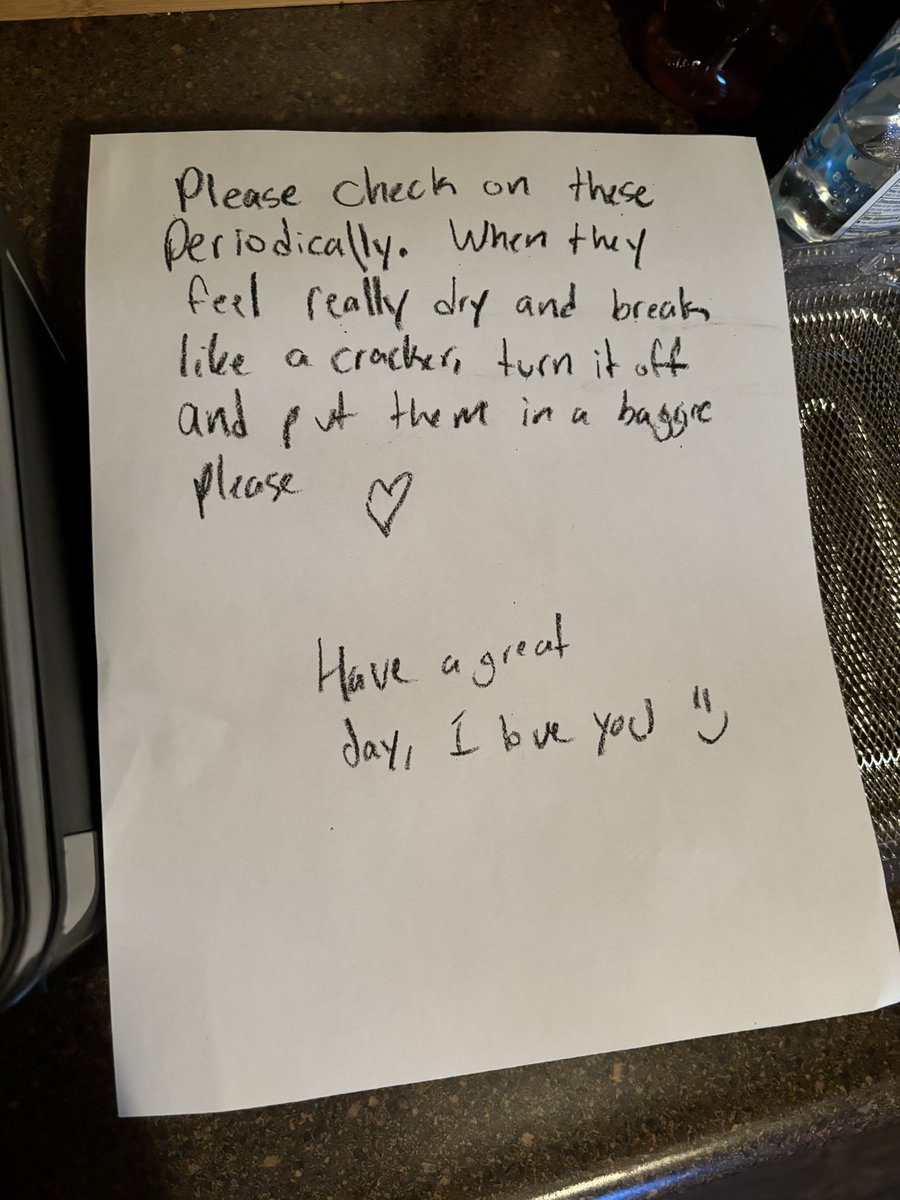 Please check on these
Periodically. When they
feel really dry and break
like a cracker, turn it off
and put them in a baggie
please ♡
Have a great
day, I love you "⌣